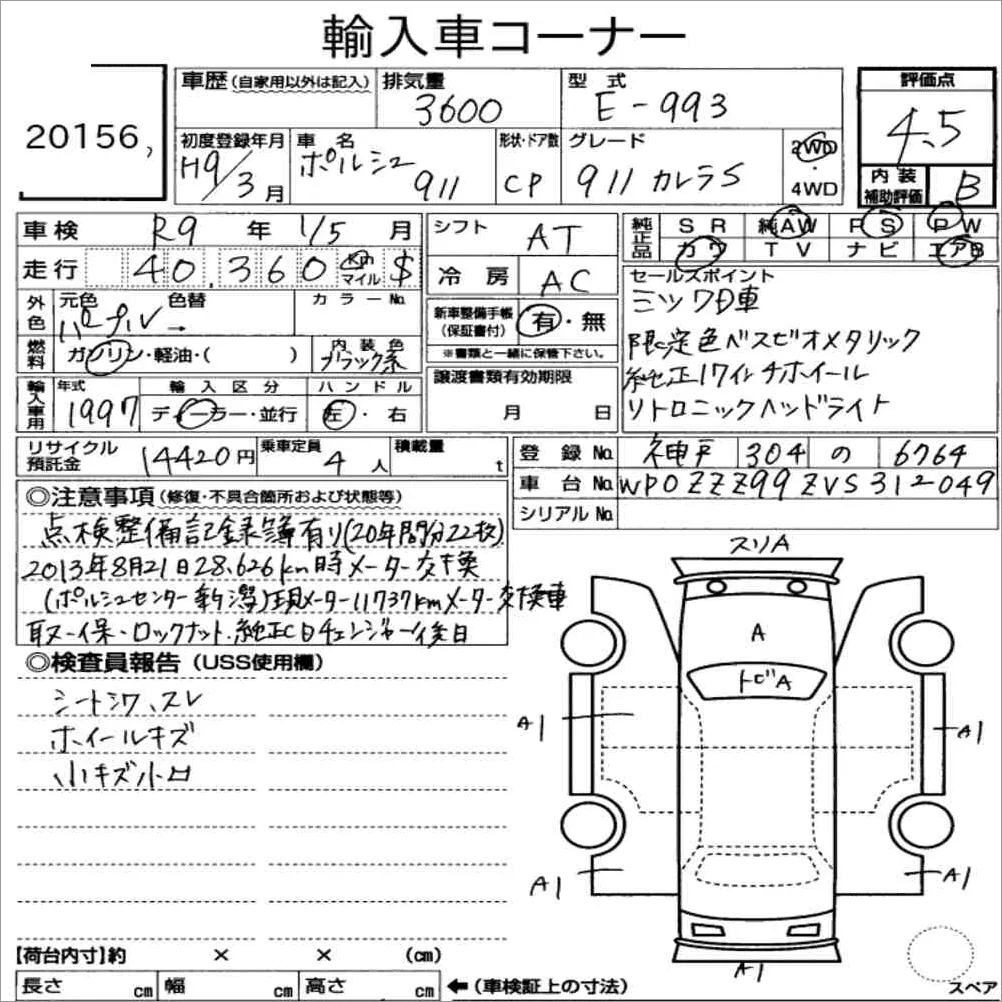 輸入車コーナー
20156
車歴 (自家用以外は記入) 排気量 3600 型式 E-993 評価点 4.5
初度登録年月 H9/3月 車名 ポルシェ 911 形状・ドア数 CP グレード 911 カレラS 2WD・4WD 内装補助評価 B
車検 R9年 1/5月 シフト AT 純正品 SR 純AW PS PW
走行 40,360 km マイル $ 冷房 AC カワ TV ナビ エアB
外色 元色 パープル 色替 → カラーNo. 新車整備手帳(保証書付) 有・無
※書類と一緒に保管下さい。
燃料 ガソリン・軽油・( ) 内装色 ブラック系 譲渡書類有効期限 月 日
輸入車用 年式 1997 輸入区分 ディーラー・並行 ハンドル 左・右
セールスポイント
ミツワD車
限定色ベスビオメタリック
純正17インチホイール
リトロニックヘッドライト
リサイクル預託金 14420円 乗車定員 4人 積載量 t 登録No. 神戸 304 の 6764
車台No. WP0ZZZ99ZVS312049
シリアルNo.
◎注意事項 (修復・不具合箇所および状態等)
点検整備記録簿有り(20年間分22枚)
2013年8月21日28,626km時メーター交換
(ポルシェセンター新潟)現メーター11737kmメーター交換車
取-保・ロックナット.純正CDチェンジャー後日
◎検査員報告 (USS使用欄)
シートシワ、スレ
ホイールキズ
小キズ小凹
スリA
A
トビA
A1
A1
A1
A1
A1
【荷台内寸】約 × × (cm)
長さ cm 幅 cm 高さ cm ←(車検証上の寸法)
スペア